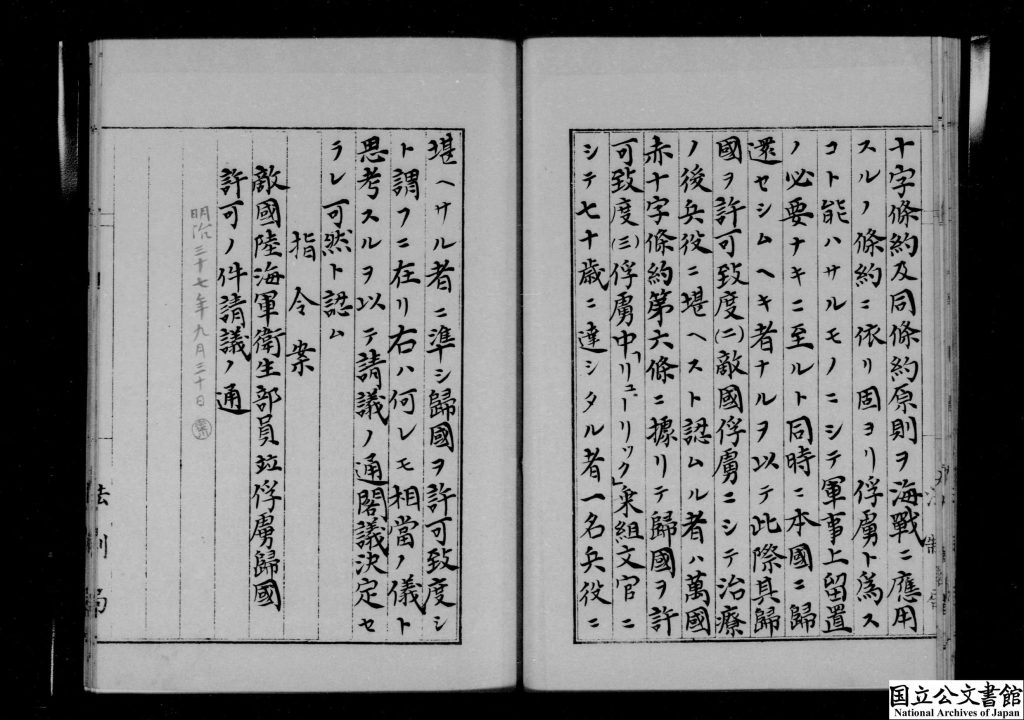 十字條約及同條約原則ヲ海戰ニ應用
スルノ條約ニ依リ固ヨリ俘虜ト爲ス
コト能ハサルモノニシテ軍事上留置
ノ必要ナキニ至ルト同時ニ本國ニ歸
還セシムヘキ者ナルヲ以テ此際其歸
國ヲ許可致度(二)敵國俘虜ニシテ治療
ノ後兵役ニ堪ヘスト認ムル者ハ萬國
赤十字條約第六條ニ據リテ歸國ヲ許
可致度(三)俘虜中「リューリック」乘組文官ニ
シテ七十歳ニ達シタル者一名兵役ニ
堪ヘサル者ニ準シ歸國ヲ許可致度シ
ト謂フニ在リ右ハ何レモ相當ノ儀ト
思考スルヲ以テ請議ノ通閣議決定セ
ラレ可然ト認ム
指令案
敵國陸海軍衛生部員竝俘虜歸國
許可ノ件請議ノ通
明治三十七年九月三十日
法制局
国立公文書館
National Archives of Japan